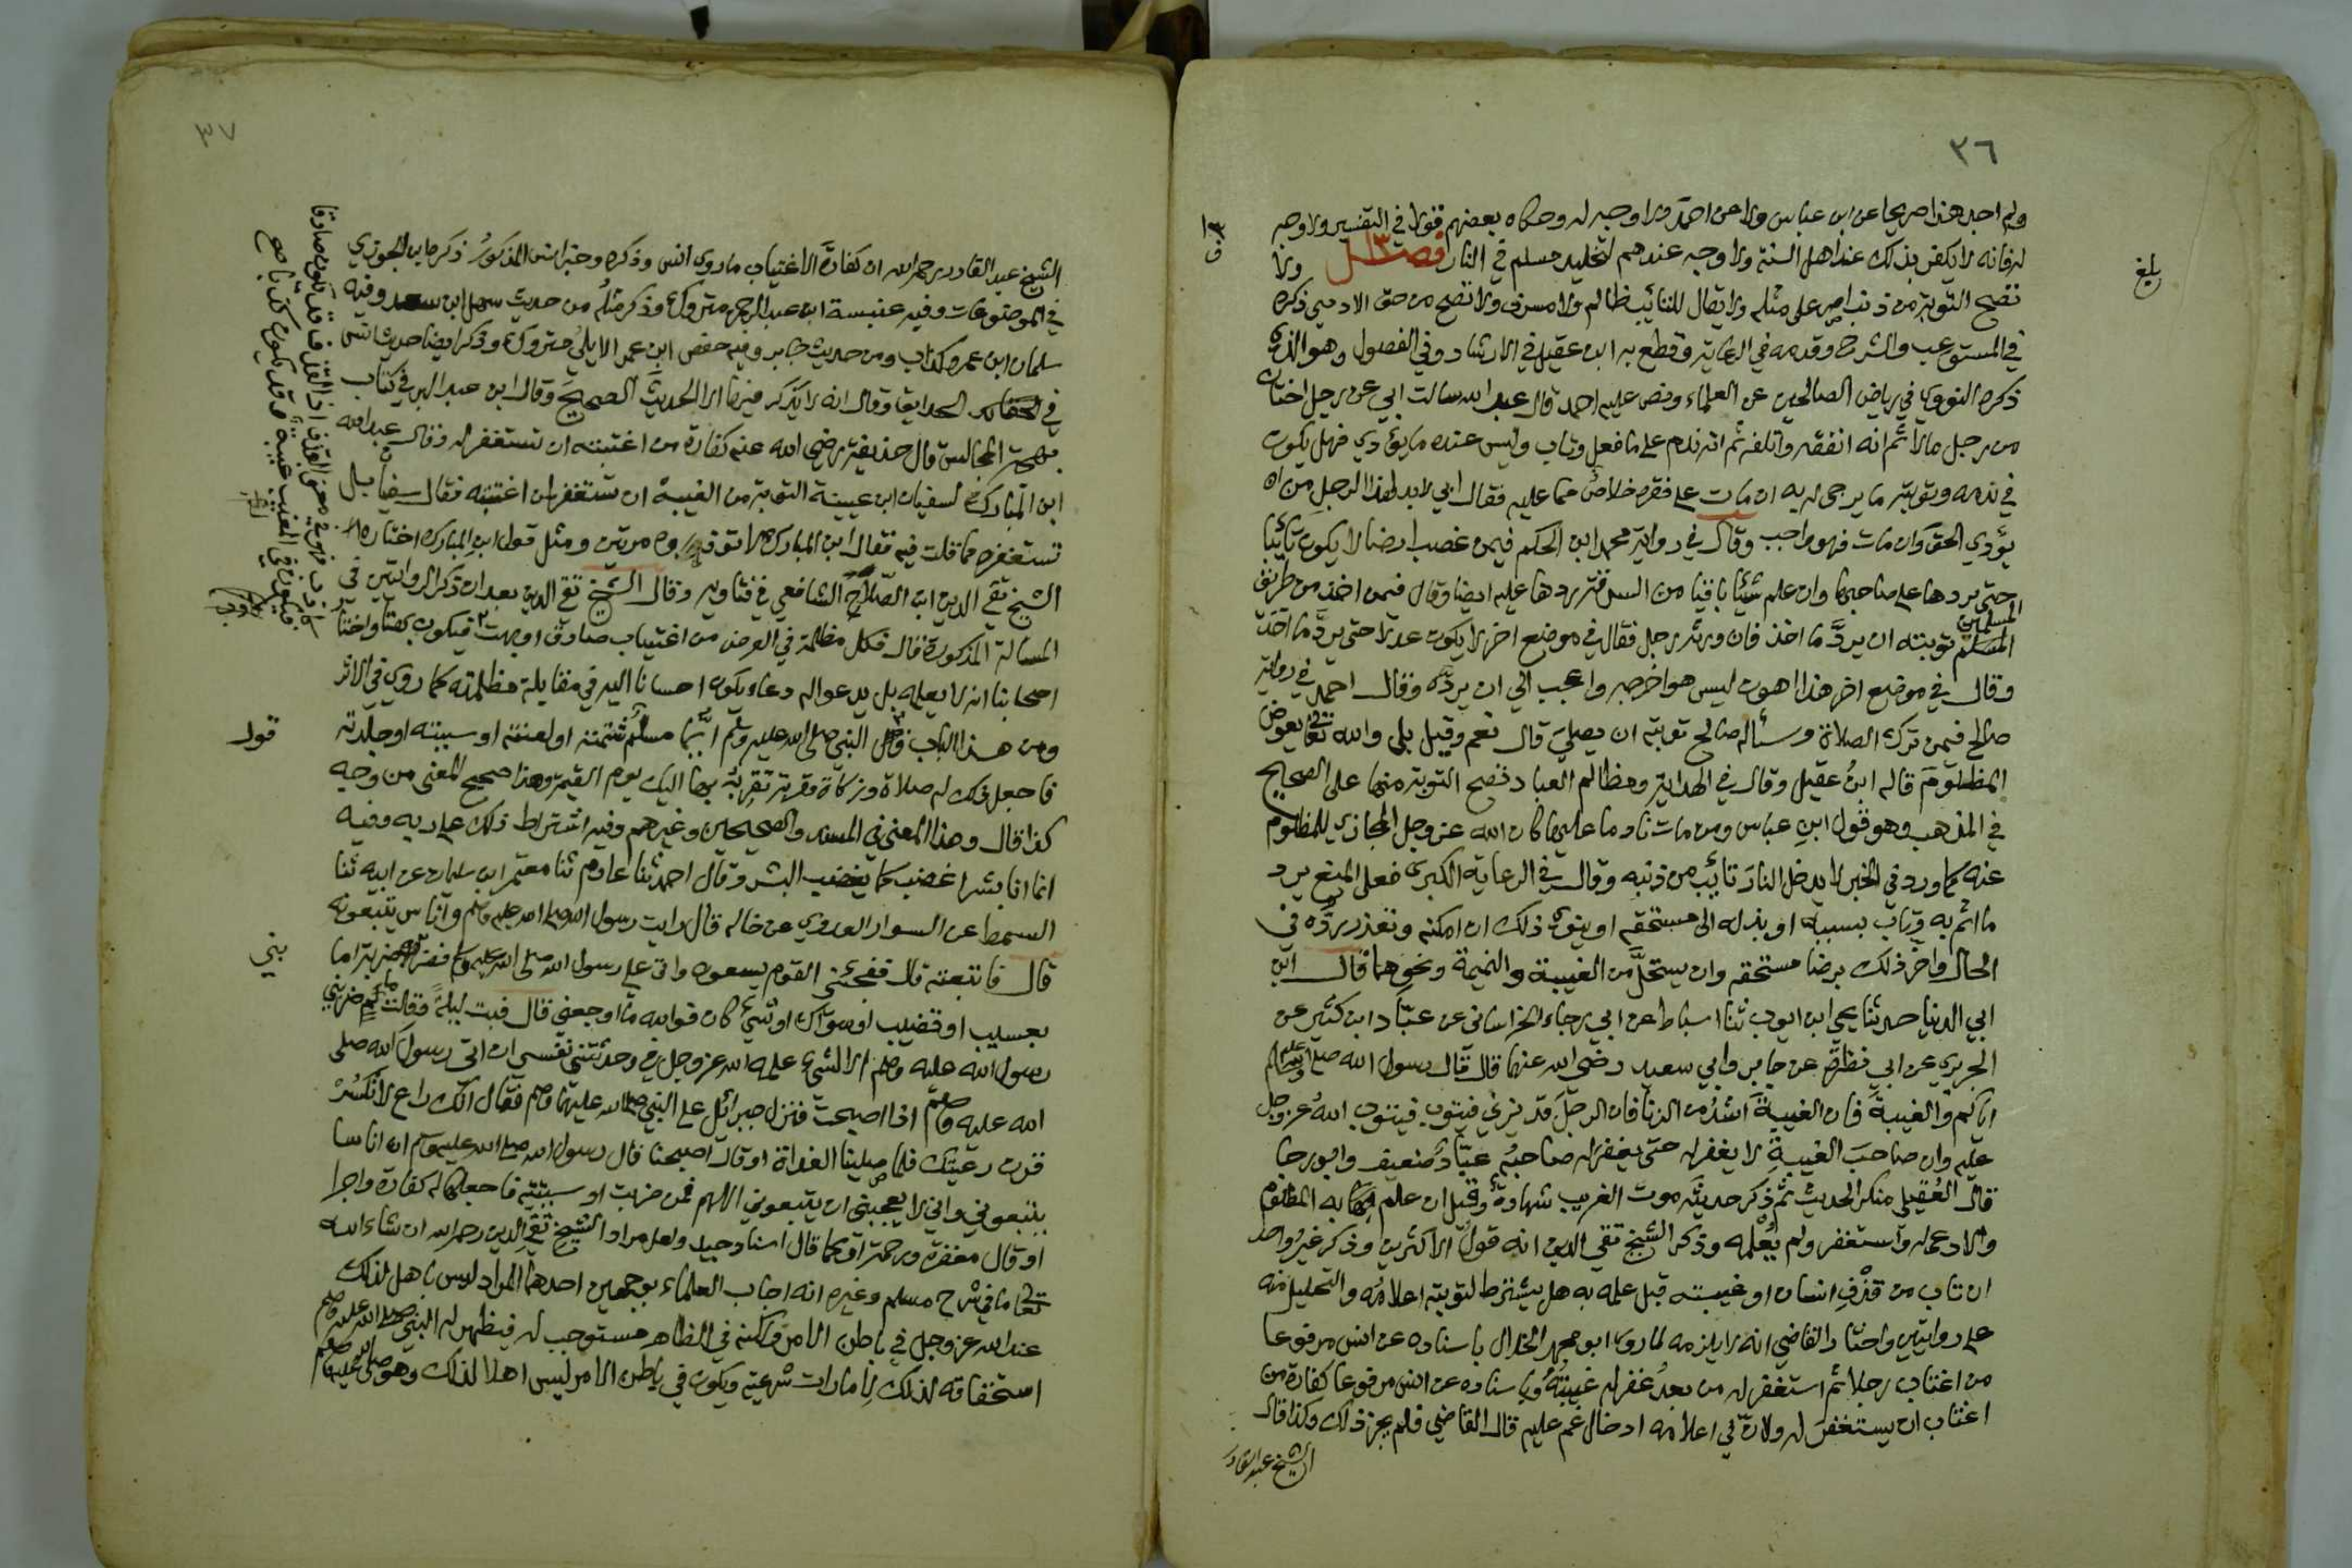 ٣٦
ولم اجد هذا صريحا عن ابن عباس ولا عن احمد ولا وجه له وحكاه بعضهم قولا في التفسير ولا وجه
له فانه لا يكفر بذلك عند اهل السنة ولا وجه عندهم لتخليد مسلم في النار فصل ولا
تصح التوبة من ذنب اصر على مثله ولا يقال للتائب ظالم ولا مسرف ولا تصح من حق الادمي ذكره
في المستوعب والشرح وقدمه في الرعاية وقطع به ابن عقيل في الارشاد وفي الفصول وهو الذي
ذكره النووي في رياض الصالحين عن العلماء ونص عليه احمد قال عبد الله سالت ابي عن رجل اختان
من رجل مالا ثم انه انفقه واتلفه ثم انه ندم على ما فعل وتاب وليس عنده ما يؤدي فهل يكون
في ندمه وتوبته ما يرجى له به ان مات على فقره خلاص مما عليه فقال ابي لا بد لهذا الرجل من ان
يؤدي الحق وان مات فهو واجب وقال في رواية محمد ابن الحكم فيمن غصب ارضا لا يكون تائبا
حتى يردها على صاحبها وان علم شيئا باقيا من السرقة يردها عليه ايضا وقال فيمن اخذ من طريق
المسلمين توبته ان يرد ما اخذ فان ورثه رجل فقال في موضع اخر لا يكون عدلا حتى يرد ما اخذ
وقال في موضع اخر هذا اهون ليس هو اخرجه واعجب الي ان يرده وقال احمد في رواية
صالح فيمن ترك الصلاة وسئاله صالح توبته ان يصلي قال نعم وقيل بلى والله تعالى يعوض
المظلوم قاله ابن عقيل وقال في الهداية ومظالم العباد تصح التوبة منها على الصحيح
في المذهب وهو قول ابن عباس ومن مات نادما عليها كان الله عز وجل المجازي للمظلوم
عنه كما ورد في الخبر لا يدخل النار تائب من ذنبه وقال في الرعاية الكبرى فعلى المنع يرد
ما اثم به وتاب بسببه او بذله الى مستحقه او ينوي ذلك ان امكنه وتعذر رده في
الحال واخر ذلك برضا مستحقه وان يستحل من الغيبة والنميمة ونحوهما قال ابن
ابي الدنيا حدثنا يحيى ابن ايوب ثنا اسباط عن ابي رجاء الخراساني عن عباد ابن كثير عن
الجريري عن ابي نضرة عن جابر وابي سعيد رضي الله عنهما قال قال رسول الله صلى الله عليه وسلم
اياكم والغيبة فان الغيبة اشد من الزنا فان الرجل قد يزني فيتوب فيتوب الله عز وجل
عليه وان صاحب الغيبة لا يغفر له حتى يغفر له صاحبه عباد ضعيف وابو رجا
قال العقيلي منكر الحديث ثم ذكر حديثه موت الغريب شهادة وقيل ان علم به المظلوم
والا دعا له واستغفر ولم يعلمه وذكر الشيخ تقي الدين انه قول الاكثرين وذكر غير واحد
ان تاب من قذف انسان او غيبته قبل علمه به هل يشترط لتوبته اعلامه والتحليل منه
على روايتين واختار القاضي انه لا يلزمه لما روى ابو محمد الخلال باسناده عن انس مرفوعا
من اغتاب رجلا ثم استغفر له من بعد غفر له غيبته وباسناده عن انس مرفوعا كفارة من
اغتاب ان يستغفر له ولان في اعلامه ادخال غم عليه قال القاضي فلم يجز ذلك وكذا قال
الشيخ عبد القادر
بلغ
٣٧
الشيخ عبد القادر رحمه الله ان كفارة الاغتياب ما روى انس وذكره وخبر انس المذكور ذكره ابن الجوزي
في الموضوعات وفيه عنبسة ابن عبد الرحمن متروك وذكر مثله من حديث سهل ابن سعد وفيه
سلمان ابن عمرو كذاب ومن حديث جابر وفيه حفص ابن عمر الايلي متروك وذكر ايضا حديث انس
في الحدايق وقال انه لا يذكر فيها الا الحديث الصحيح وقال ابن عبد البر في كتاب
بهجة المجالس قال حذيفة رضي الله عنه كفارة من اغتبته ان تستغفر له وقال عبد الله
ابن المبارك لسفيان ابن عيينة التوبة من الغيبة ان تستغفر لمن اغتبته فقال سفيان بل
تستغفره مما قلت فيه فقال ابن المبارك لا تؤذوه مرتين ومثل قول ابن المبارك اختاره
الشيخ تقي الدين ابن الصلاح الشافعي في فتاويه وقال الشيخ تقي الدين بعد ان ذكر الروايتين في
المسالة المذكورة قال فكل مظلمة في العرض من اغتياب صادق او بهت فيكون بهتا واختار
اصحابنا انه لا يعلمه بل يدعو له دعاء يكون احسانا اليه في مقابلة مظلمته كما روي في الاثر
ومن هذا الباب قول النبي صلى الله عليه وسلم ايما مسلم شتمته او لعنته او سببته او جلدته
فاجعل ذلك له صلاة وزكاة وقربة تقربه بها اليك يوم القيمة وهذا صحيح المعنى من وجه
كذا قال وهذا المعنى في المسند والصحيحين وغيرهم وفيه اشتراط ذلك على ربه وفيه
انما انا بشر اغضب كما يغضب البشر وقال احمد ثنا عارم ثنا معتمر ابن سليمان عن ابيه ثنا
السميط عن السوار العدوي عن خاله قال رايت رسول الله صلى الله عليه وسلم واناس يتبعونه
قال فاتبعته قال ففجئني القوم يسعون واتى علي رسول الله صلى الله عليه وسلم فضربني ضربة اما
بعسيب او قضيب او سواك او شيء كان فوالله ما اوجعني قال فبت ليلة وقلت ما ضربني
رسول الله عليه وسلم الا لشيء علمه الله عز وجل في وحدثتني نفسي ان اتي رسول الله صلى
الله عليه وسلم اذا اصبحت فنزل جبرائيل على النبي صلى الله عليهما وسلم فقال انك راع لا تكسر
قرون رعيتك فلما صلينا الغداة او قال اصبحنا قال رسول الله صلى الله عليه وسلم ان اناسا
يتبعوني واني لا يعجبني ان يتبعوني اللهم فمن ضربت او سببته فاجعلها له كفارة واجرا
او قال مغفرة ورحمة او كما قال اسناد جيد ولعل مراد الشيخ تقي الدين رحمه الله ان شاء الله
تعالى ما في شرح مسلم وغيره انه اجاب العلماء بوجهين احدهما المراد ليس باهل لذلك
عند الله عز وجل في باطن الامر ولكنه في الظاهر مستوجب له فيظهر له النبي صلى الله عليه وسلم
استحقاقه لذلك لامارات شرعية ويكون في باطن الامر ليس اهلا لذلك وهو صلى الله عليه وسلم
قول